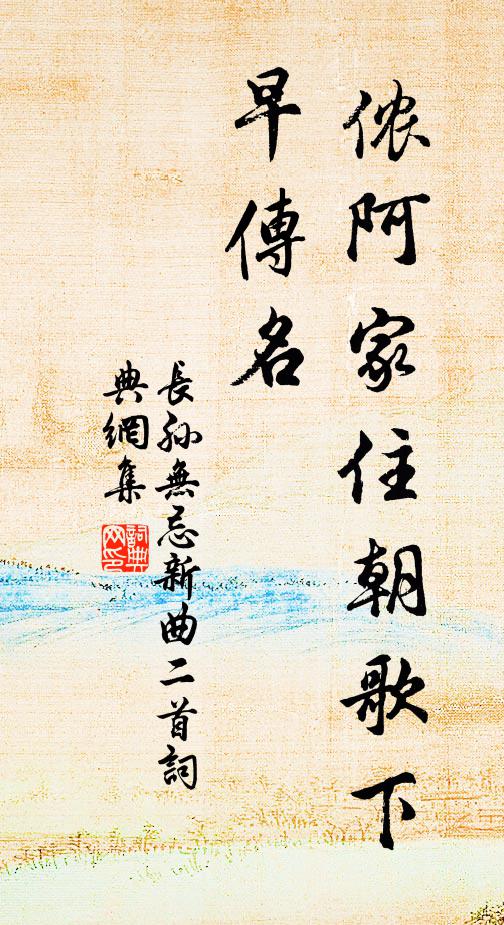 儂阿家住朝歌下
早傳名
長孫無忌新曲二首詞
典網集
詞典
网印